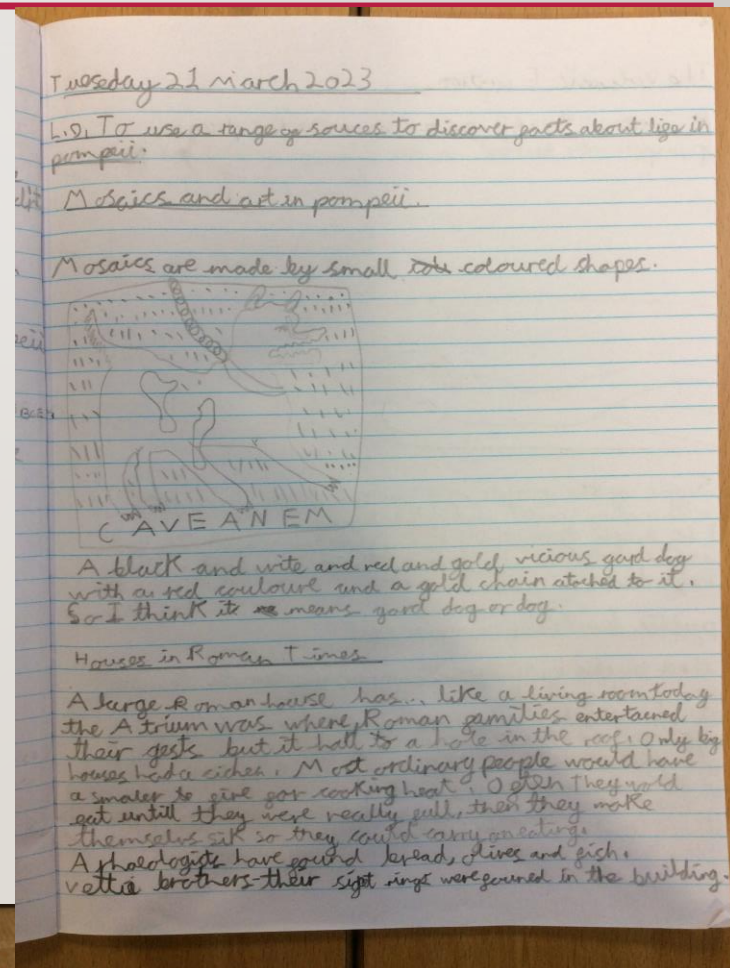 Tueseday 21 March 2023
L.O. To use a range of souces to discover facts about life in
pompeii.
Mosaics and art in pompeii.
Mosaics are made by small coloured shapes.
CAVEANEM
A black and wite and red and gold, vicious gard dog
with a red couloure and a gold chain atached to it.
So I think it means gard dog or dog.
Houses in Roman Times
A large Roman house has... like a living room today
the Atrium was where Roman families entertained
their gests but it hall to a hole in the roof. Only big
houses had a cichen. Most ordinary people would have
a smaler to fire for cooking heat. Often they wold
eat untill they were really full, then they make
themselvs sik so they could carry on eating.
Arhaeologists have found bread, olives and fish.
vettia brothers-their rings were founed in the building.